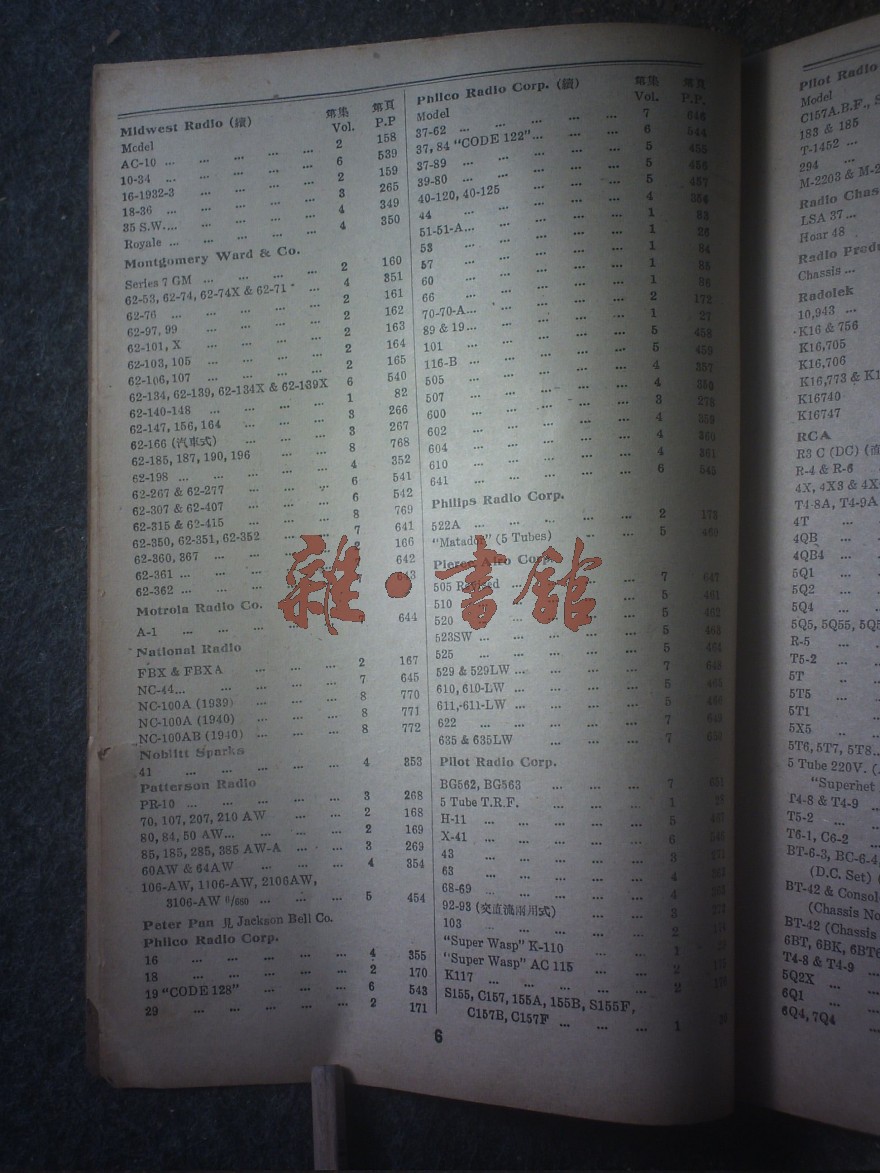 Midwest Radio (續) 第集 第頁
Model Vol. P.P
AC-10 ... ... ... ... ... 2 158
10-34 ... ... ... ... ... 6 539
16-1932-3 ... ... ... ... 2 159
18-36 ... ... ... ... ... 3 265
35 S.W.... ... ... ... ... 4 349
Royale ... ... ... ... ... 4 350
Montgomery Ward & Co.
Series 7 GM ... ... ... ... 2 160
62-53, 62-74, 62-74X & 62-71 ... 4 351
62-76 ... ... ... ... ... 2 161
62-97, 99 ... ... ... ... 2 162
62-101, X ... ... ... ... 2 163
62-103, 105 ... ... ... ... 2 164
62-106, 107 ... ... ... ... 2 165
62-134, 62-139, 62-134X & 62-139X 6 540
62-140-148 ... ... ... ... 1 82
62-147, 156, 164 ... ... ... 3 266
62-166 (汽車式) ... ... ... 3 267
62-185, 187, 190, 196 ... ... 8 768
62-198 ... ... ... ... ... 4 352
62-267 & 62-277 ... ... ... 6 541
62-307 & 62-407 ... ... ... 6 542
62-315 & 62-415 ... ... ... 8 769
62-350, 62-351, 62-352 ... ... 7 641
62-360, 367 ... ... ... ... 2 166
62-361 ... ... ... ... 642
62-362 ... ... ... ... 7 643
Motrola Radio Co.
A-1 ... ... ... ... 644
National Radio
FBX & FBXA ... ... ... 2 167
NC-44... ... ... ... ... 7 645
NC-100A (1939) ... ... ... 8 770
NC-100A (1940) ... ... ... 8 771
NC-100AB (1940) ... ... ... 8 772
Noblitt Sparks
41 ... ... ... ... ... 4 353
Patterson Radio
PR-10 ... ... ... ... ... 3 268
70, 107, 207, 210 AW ... ... 2 168
80, 84, 50 AW... ... ... ... 2 169
85, 185, 285, 385 AW-A ... ... 3 269
60AW & 64AW ... ... ... 4 354
106-AW, 1106-AW, 2106AW,
3106-AW ... ... ... 5 454
Peter Pan 見 Jackson Bell Co.
Philco Radio Corp.
16 ... ... ... ... ... 4 355
18 ... ... ... ... ... 2 170
19 "CODE 128" ... ... ... ... 6 543
29 ... ... ... ... ... 2 171
Philco Radio Corp. (續) 第集 第頁
Model Vol. P.P.
37-62 ... ... ... ... ... 7 646
37, 84 "CODE 122"... ... ... 6 544
37-89 ... ... ... ... ... 5 455
39-80 ... ... ... ... ... 5 456
40-120, 40-125 ... ... ... 5 457
44 ... ... ... ... ... 4
51-51-A... ... ... ... ... 1 83
53 ... ... ... ... ... 1 26
57 ... ... ... ... ... 1 84
60 ... ... ... ... ... 1 85
66 ... ... ... ... ... 1 86
70-70-A... ... ... ... ... 2 172
89 & 19... ... ... ... ... 1 27
101 ... ... ... ... ... 5 458
116-B ... ... ... ... ... 5 459
505 ... ... ... ... ... 4 357
507 ... ... ... ... ... 4
600 ... ... ... ... ... 3
602 ... ... ... ... ... 4 359
604 ... ... ... ... ... 4 360
610 ... ... ... ... ... 4 361
641 ... ... ... ... ... 6 545
Philips Radio Corp.
522A ... ... ... ... ... 2 173
"Matador" (5 Tubes) ... ... 5 460
Pierce Airo Corp.
505 Revised ... ... ... ... 7 647
510 ... ... ... ... 5 461
520 ... ... ... ... 5 462
523SW ... ... ... ... ... 5 463
525 ... ... ... ... ... 5 464
529 & 529LW ... ... ... ... 7 648
610, 610-LW ... ... ... ... 5 465
611, 611-LW ... ... ... ... 5 466
622 ... ... ... ... ... 7 649
635 & 635LW ... ... ... 7 650
Pilot Radio Corp.
BG562, BG563 ... ... ... 7 651
5 Tube T.R.F. ... ... ... 1 28
H-11 ... ... ... ... ... 5
X-41 ... ... ... ... ... 6
43 ... ... ... ... ... 3
63 ... ... ... ... ... 4
68-69 ... ... ... ... ... 4
92-93 (交直流兩用式) ... ... 3
103 ... ... ... ... ... 2
"Super Wasp" K-110 ... ... 1
"Super Wasp" AC 115 ... ... 2
K117 ... ... ... ... ... 2
S155, C157, 155A, 155B, S155F,
C157B, C157F ... ... ... 1
6
雜·書館
Pilot Radio
Model
C157A.B.F., S
183 & 185
T-1452 ...
294 ...
M-2203 & M-2
Radio Chas
LSA 37...
Hoar 48
Radio Prod
Chassis ...
Radolek
10,943 ...
K16 & 756
K16,705
K16,706
K16,773 & K1
K16740
K16747
RCA
R3 C (DC)
R-4 & R-6
4X, 4X3 & 4X
T4-8A, T4-9A
4T ...
4QB ...
4QB4 ...
5Q1 ...
5Q2 ...
5Q4 ...
5Q5, 5Q55, 5Q5
R-5 ...
T5-2 ...
5T ...
5T5 ...
5T1 ...
5X5 ...
5T6, 5T7, 5T8...
5 Tube 220V. (
"Superhet
T4-8 & T4-9 ...
T5-2 ...
T6-1, C6-2 ...
BT-6-3, BC-6-4,
(D.C. Set) (
BT-42 & Consol
(Chassis No
BT-42 (Chassis
6BT, 6BK, 6BT6
T4-8 & T4-9 ...
5Q2X ...
6Q1 ...
6Q4, 7Q4 ...